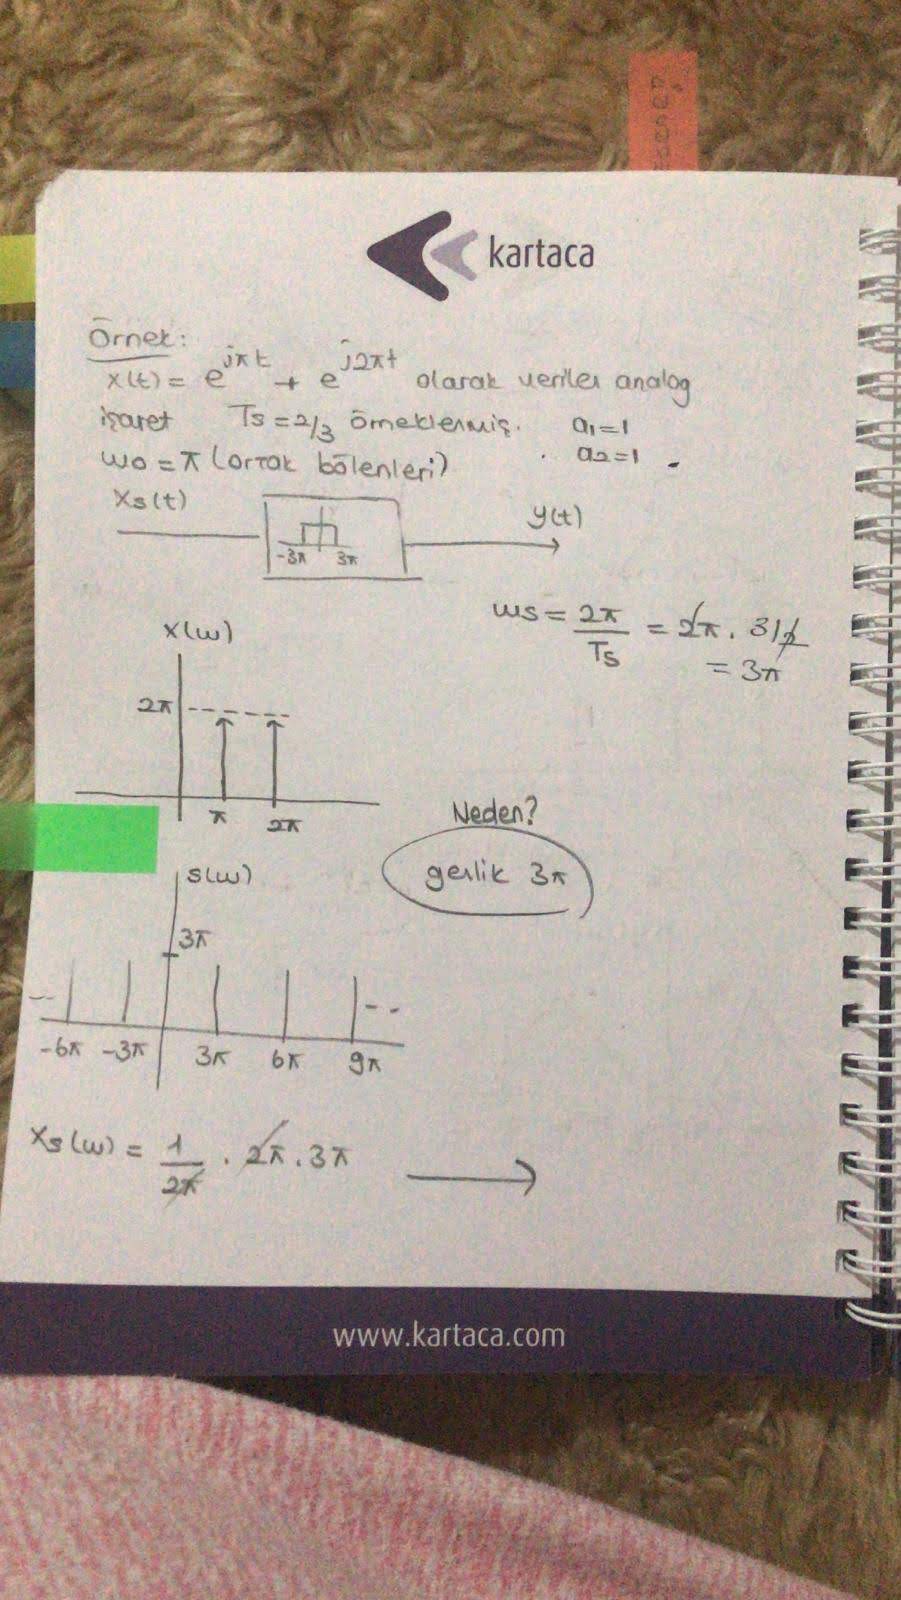 kartaca
Örnek:
x(t) = e^jπt + e^j2πt olarak verilen analog
işaret Ts = 2/3 örneklenmiş. a1=1
w0 = π (ortak bölenleri) . a2=1
Xs(t)
y(t)
-3π 3π
ws = 2π/Ts = 2π . 3/2
= 3π
X(w)
2π
π 2π
Neden?
genlik 3π
S(w)
3π
-6π -3π 3π 6π 9π
Xs(w) = 1/2π . 2π . 3π →
www.kartaca.com